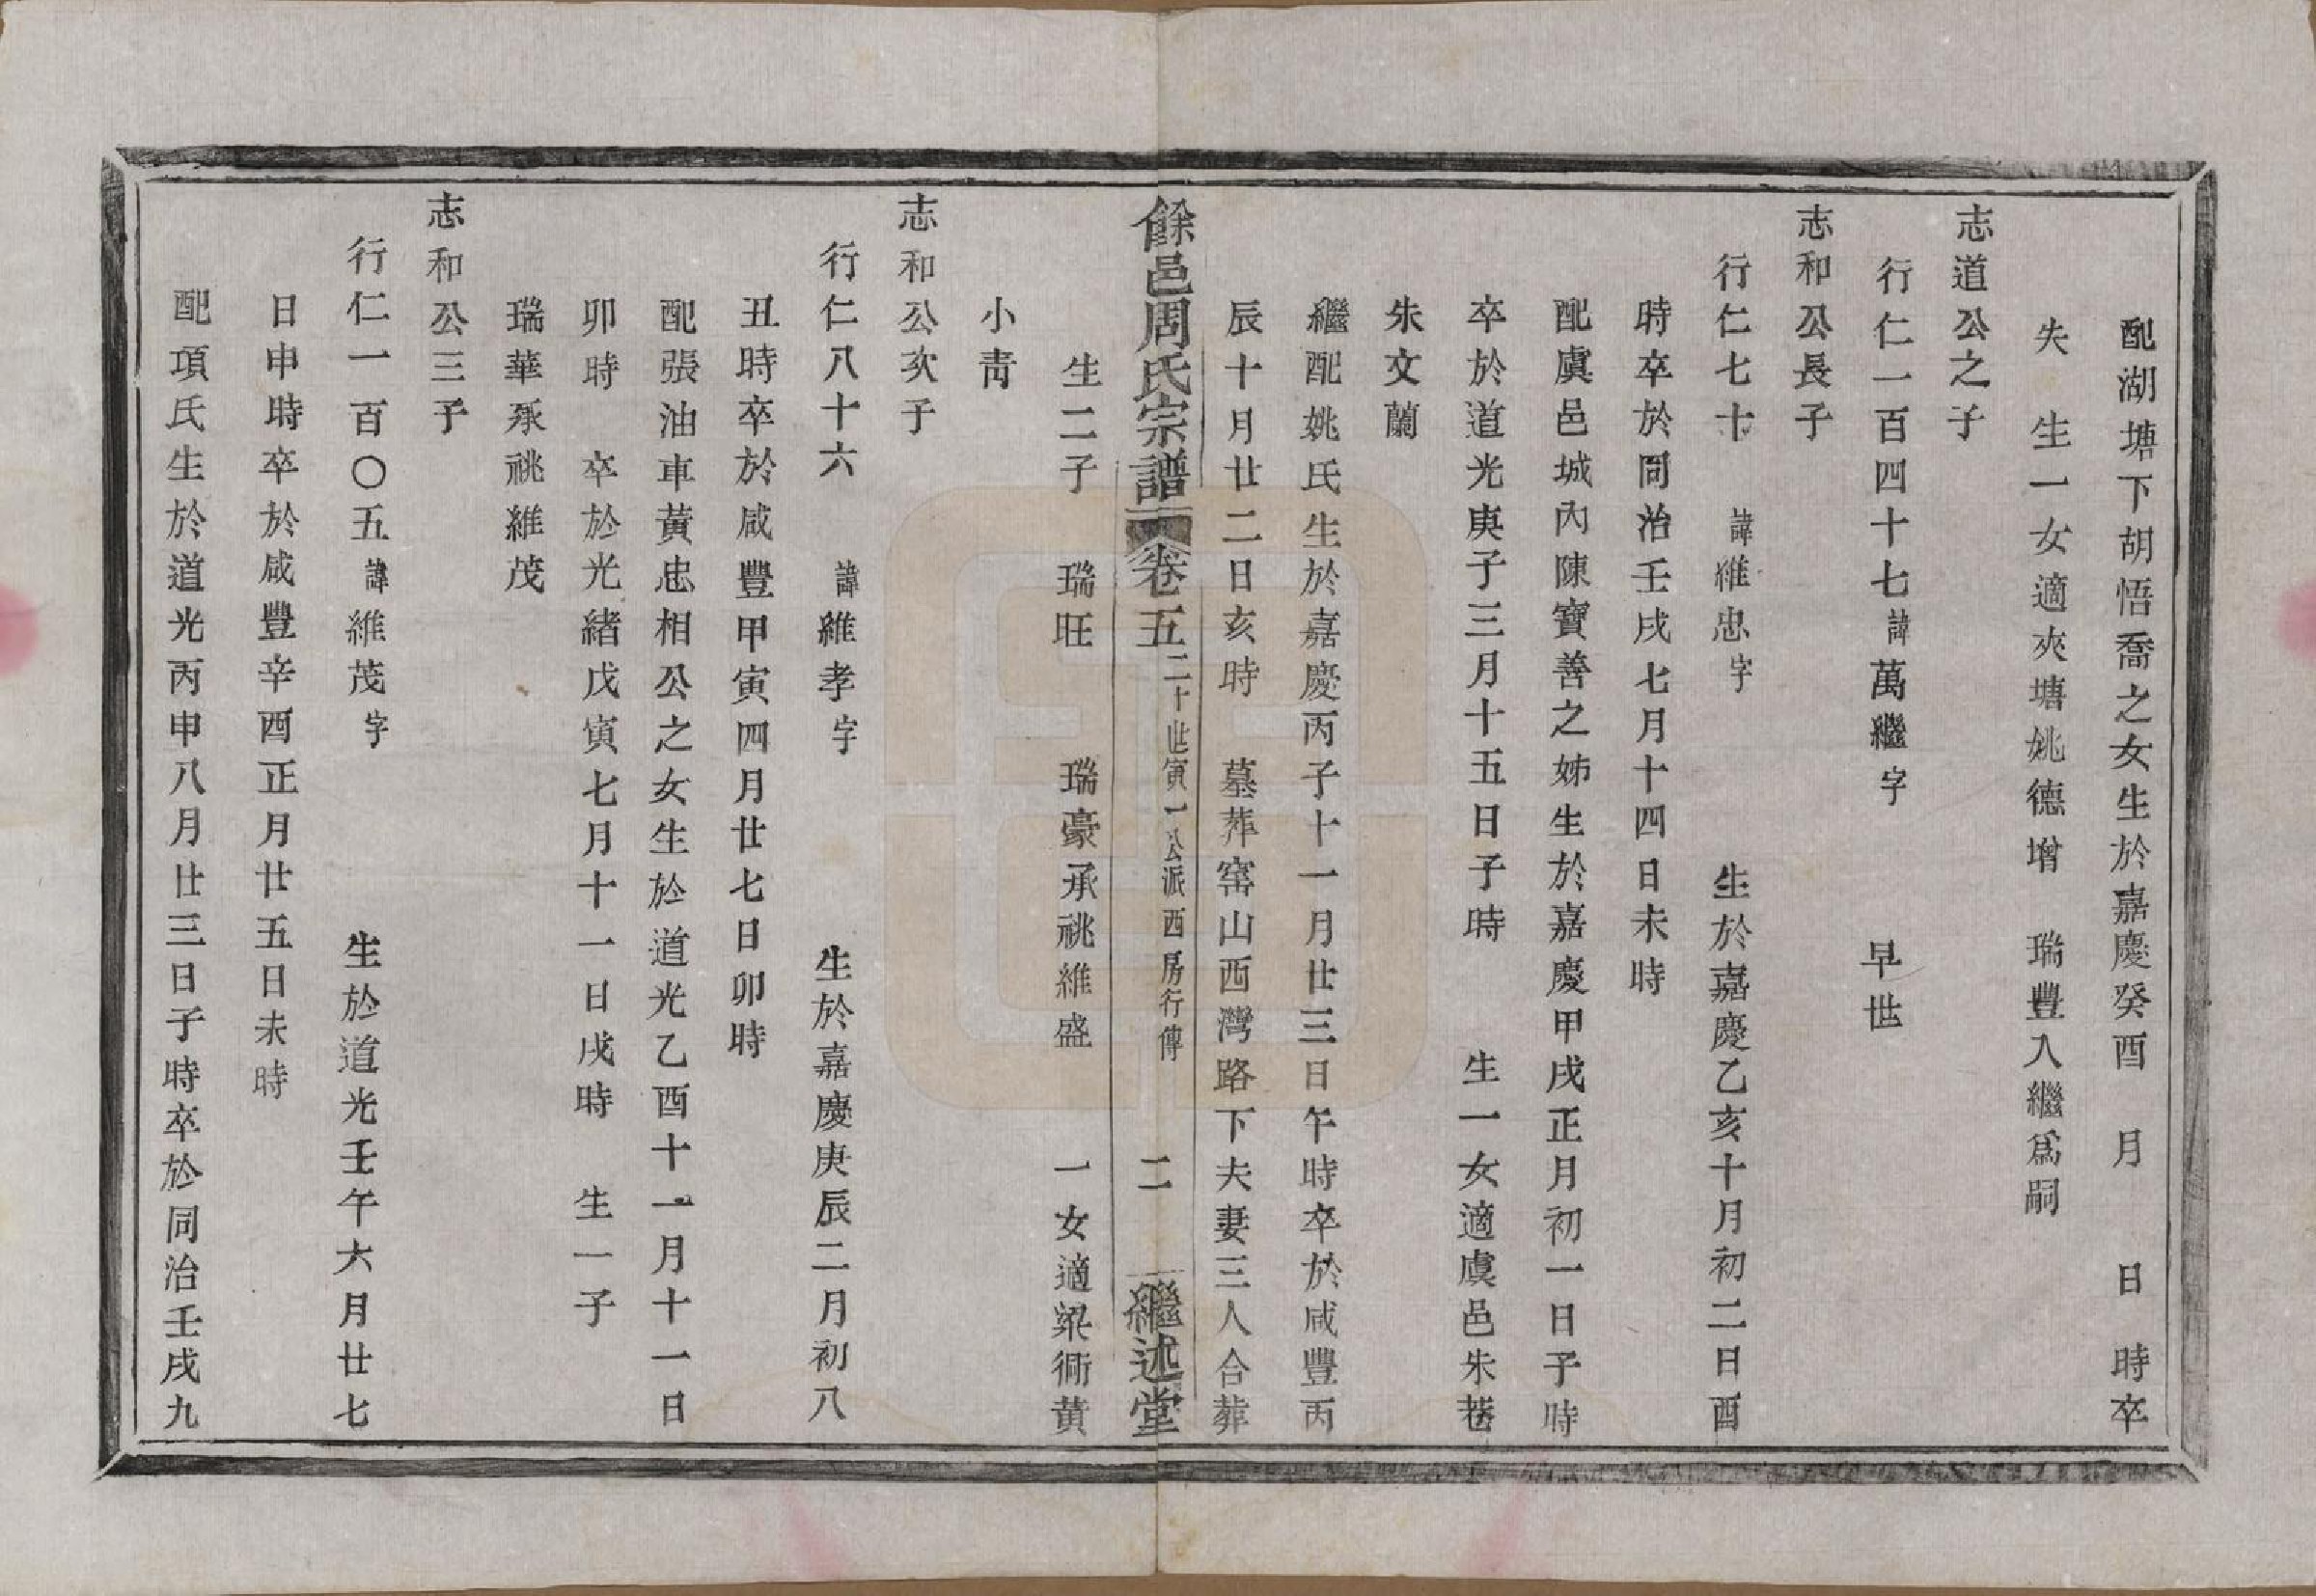 配湖塘下胡悟喬之女生於嘉慶癸酉　月　日　時卒
失　生一女適夾塘姚德增　瑞豐入繼爲嗣
志道公之子
行仁一百四十七諱萬繼字　早世
志和公長子
行仁七十　諱維忠字　生於嘉慶乙亥十月初二日酉
時卒於同治壬戌七月十四日未時
配虞邑城內陳寶善之姊生於嘉慶甲戌正月初一日子時
卒於道光庚子三月十五日子時　生一女適虞邑朱巷
朱文蘭
繼配姚氏生於嘉慶丙子十一月廿三日午時卒於咸豐丙
辰十月廿二日亥時　墓葬窰山西灣路下夫妻三人合葬
餘邑周氏宗譜　卷五　二十世寅一公派西房行傳　二　繼述堂
生二子　瑞旺　瑞豪承祧維盛　一女適梁衕黃
小靑
志和公次子
行仁八十六　諱維孝字　生於嘉慶庚辰二月初八
丑時卒於咸豐甲寅四月廿七日卯時
配張油車黃忠相公之女生於道光乙酉十一月十一日
卯時　卒於光緖戊寅七月十一日戌時　生一子
瑞華承祧維茂
志和公三子
行仁一百〇五諱維茂字　生於道光壬午六月廿七
日申時卒於咸豐辛酉正月廿五日未時
配項氏生於道光丙申八月廿三日子時卒於同治壬戌九